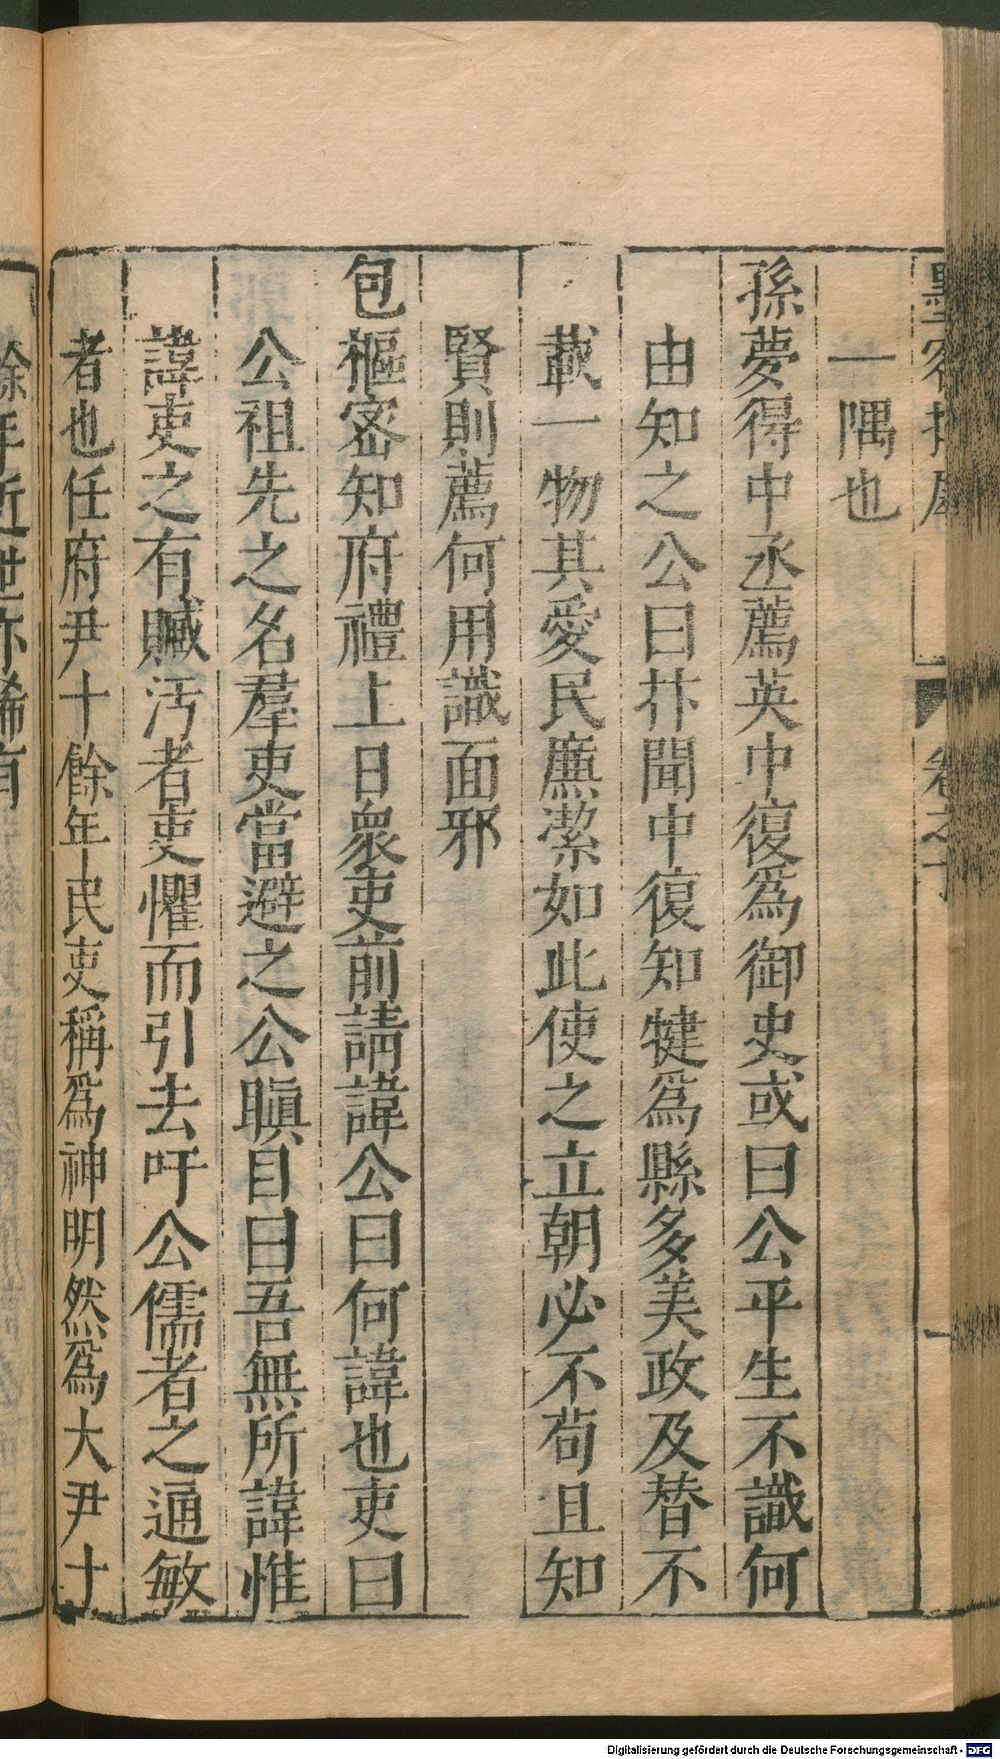 卷之下
一隅也
孫夢得中丞薦英中復為御史或曰公平生不識何
由知之公曰抃聞中復知犍為縣多美政及替不
載一物其愛民廉潔如此使之立朝必不苟且知
賢則薦何用識面邪
包樞密知府禮上日衆吏前請諱公曰何諱也吏曰
公祖先之名羣吏當避之公瞋目曰吾無所諱惟
諱吏之有贓汚者吏懼而引去吁公儒者之通敏
者也任府尹十餘年民吏稱為神明然為大尹十
餘年近世亦稀有
Digitalisierung gefördert durch die Deutsche Forschungsgemeinschaft - DFG